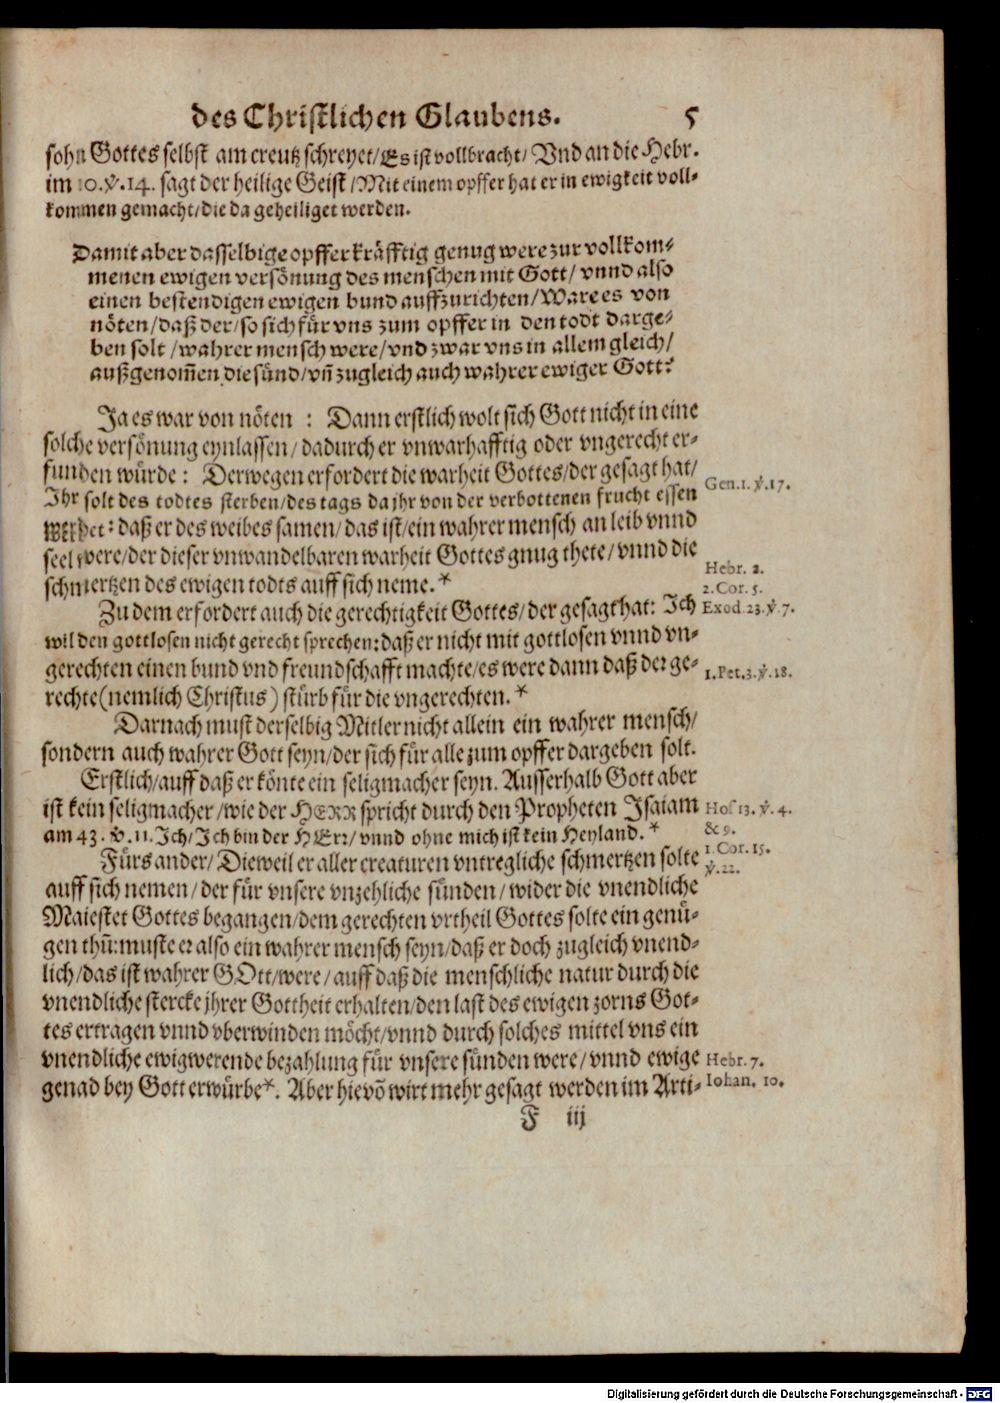 des Christlichen Glaubens. 5
sohn Gottes selbst am creutz schreyet/Es ist vollbracht/ Vnd an die Hebr.
im 10.v.14. sagt der heilige Geist/Mit einem opffer hat er in ewigkeit voll-
kommen gemacht/die da geheiliget werden.
Damit aber dasselbige opffer kräfftig genug were zur vollkom-
menen ewigen versönung des menschen mit Gott/ vnnd also
einen bestendigen ewigen bund auffzurichten/Ware es von
nöten/daß der/so sich für vns zum opffer in den todt darge-
ben solt/wahrer mensch were/vnd zwar vns in allem gleich/
außgenom̄en die sünd/vn̄ zugleich auch wahrer ewiger Gott?
Ja es war von nöten : Dann erstlich wolt sich Gott nicht in eine
solche versönung eynlassen/dadurch er vnwarhafftig oder vngerecht er-
funden würde: Derwegen erfordert die warheit Gottes/der gesagt hat/
Gen.1.v.17.
Ihr solt des todtes sterben/des tags da jhr von der verbottenen frucht essen
werdet: daß er des weibes samen/das ist/ein wahrer mensch an leib vnnd
seel were/der dieser vnwandelbaren warheit Gottes gnug thete/vnnd die
Hebr. 2.
schmertzen des ewigen todts auff sich neme.*
2.Cor. 5.
Zu dem erfordert auch die gerechtigkeit Gottes/der gesagt hat: Ich
Exod.23.v.7.
wil den gottlosen nicht gerecht sprechen:daß er nicht mit gottlosen vnnd vn-
gerechten einen bund vnd freundschafft machte/es were dann daß der ge-
1.Pet.3.v.18.
rechte(nemlich Christus) stürb für die vngerechten.*
Darnach must derselbig Mitler nicht allein ein wahrer mensch/
sondern auch wahrer Gott seyn/der sich für alle zum opffer dargeben solt.
Erstlich/auff daß er könte ein seligmacher seyn. Ausserhalb Gott aber
ist kein seligmacher/wie der HERR spricht durch den Propheten Isaiam
Hos 13. v. 4.
am 43. v.11. Ich/Ich bin der HErr/vnnd ohne mich ist kein Heyland.*
& 9.
1.Cor. 15.
Fürs ander/Dieweil er aller creaturen vntregliche schmertzen solte
v.22.
auff sich nemen/der für vnsere vnzehliche sünden/wider die vnendliche
Maiestet Gottes begangen/dem gerechten vrtheil Gottes solte ein genü-
gen thů: muste er also ein wahrer mensch seyn/daß er doch zugleich vnend-
lich/das ist wahrer GOtt/were/auff daß die menschliche natur durch die
vnendliche stercke jhrer Gottheit erhalten/den last des ewigen zorns Got-
tes ertragen vnnd vberwinden möcht/vnnd durch solches mittel vns ein
vnendliche ewigwerende bezahlung für vnsere sünden were/vnnd ewige
Hebr. 7.
genad bey Gott erwürbe*. Aber hievō wirt mehr gesagt werden im Arti-
Iohan. 10.
F iij
Digitalisierung gefördert durch die Deutsche Forschungsgemeinschaft - DFG